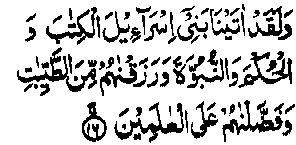 وَلَقَدْ اٰتَيْنَا بَنِيْۤ اِسْرَآءِيْلَ الْكِتٰبَ وَ
الْحُكْمَ وَالنُّبُوَّةَ وَرَزَقْنٰهُمْ مِّنَ الطَّيِّبٰتِ
وَفَضَّلْنٰهُمْ عَلَى الْعٰلَمِيْنَ ۚ﴿۱۶﴾